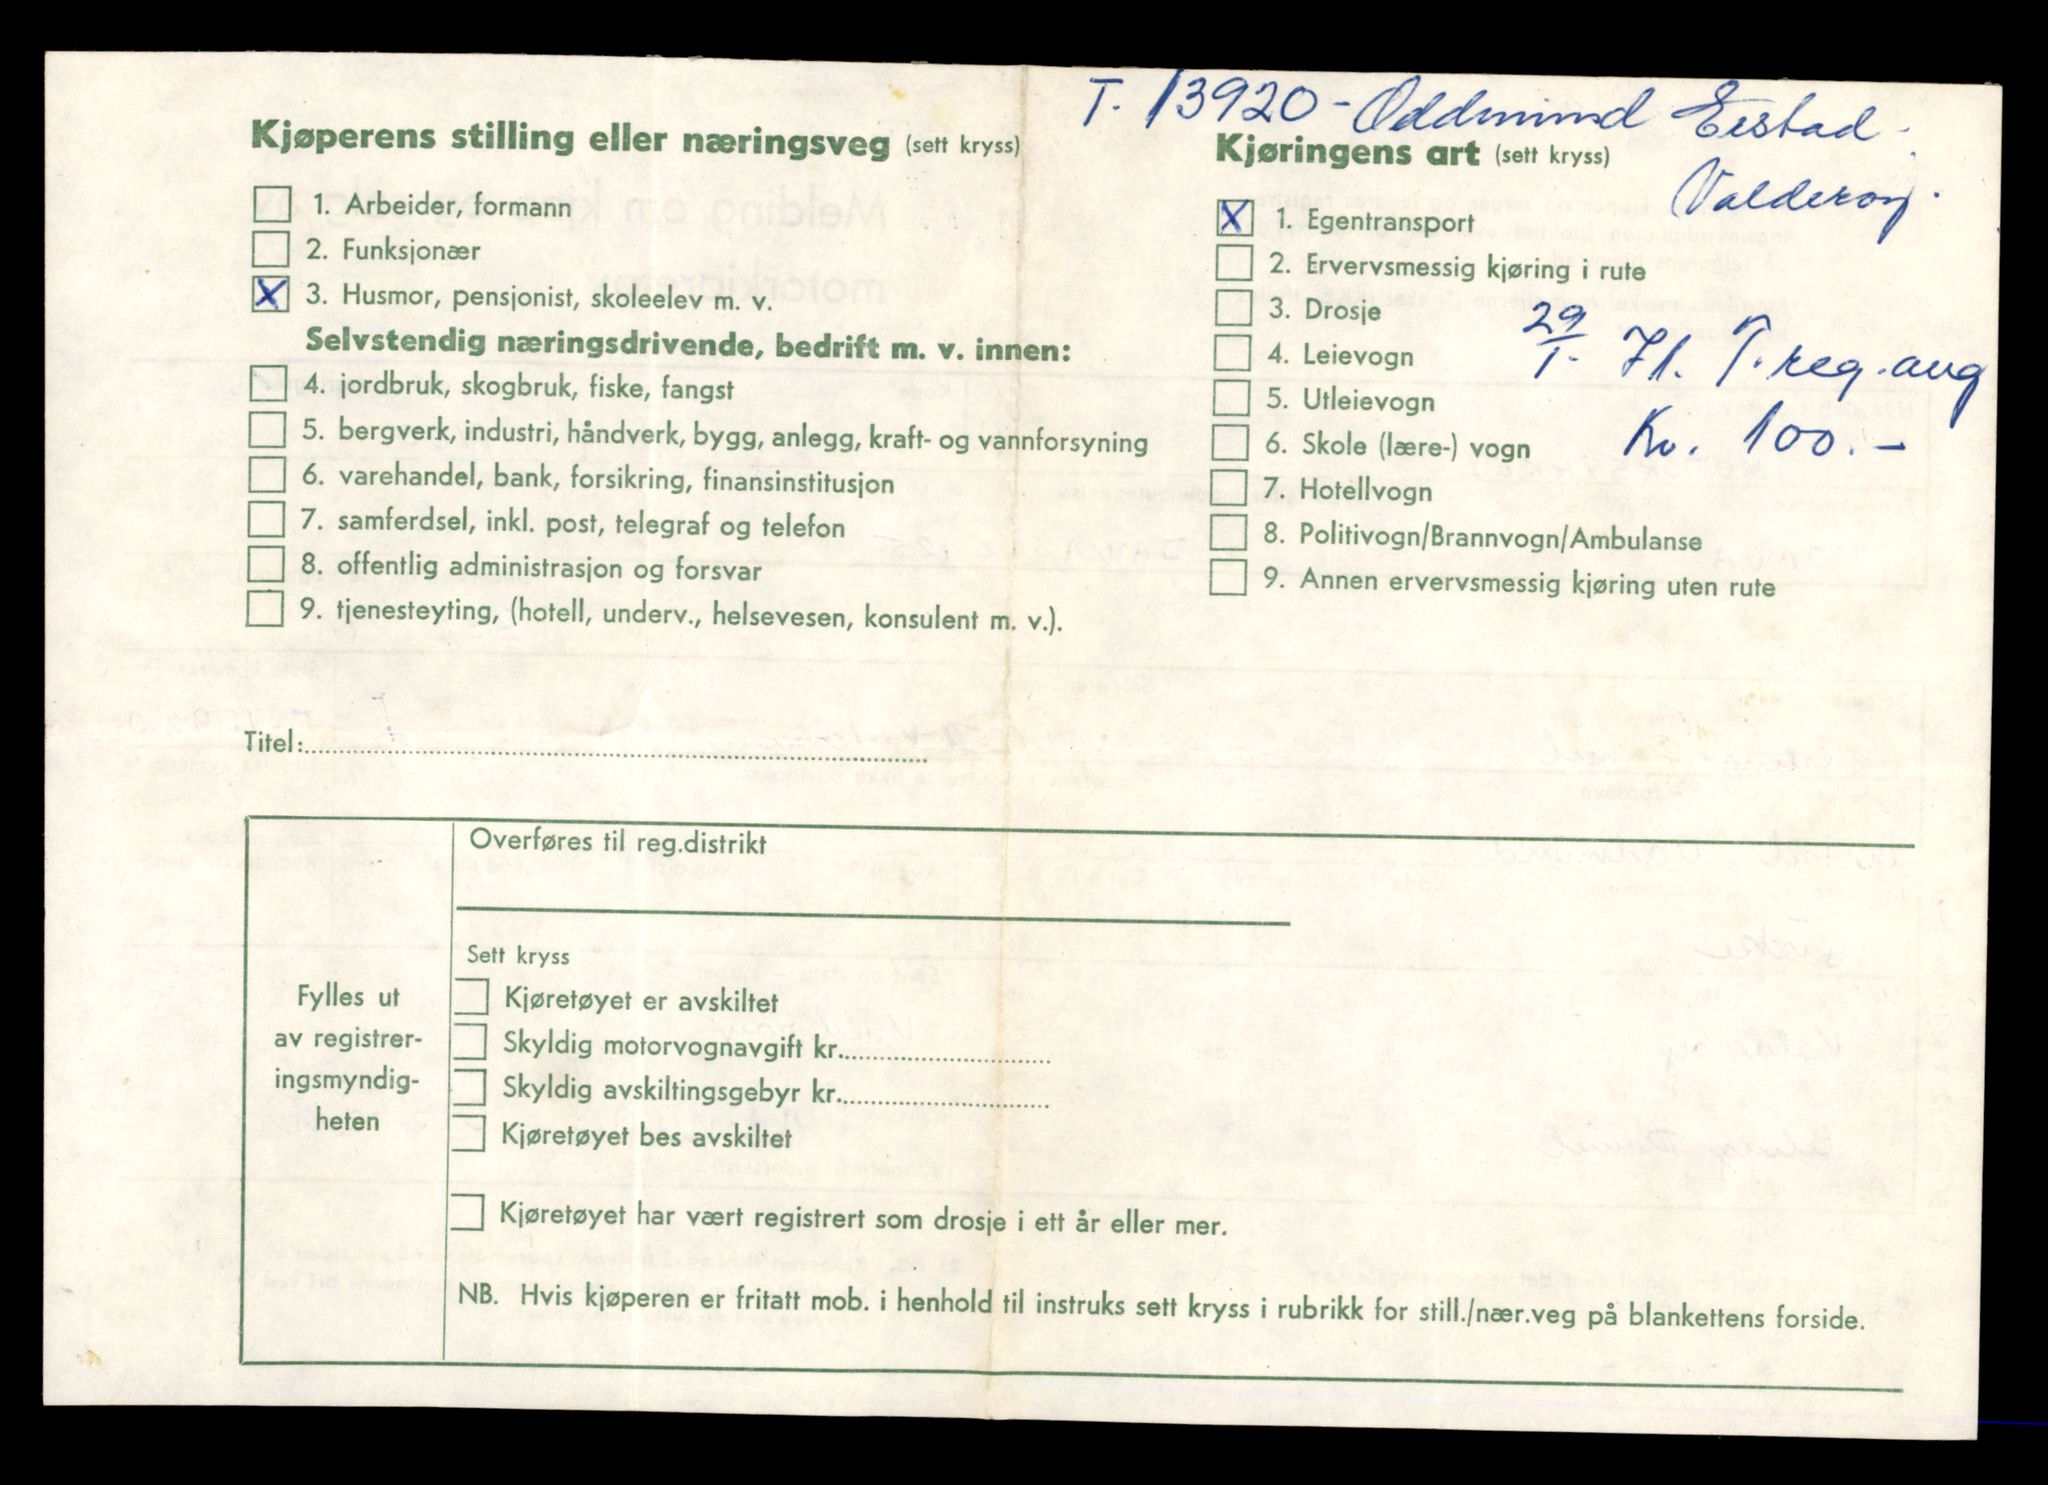 T. 13920 - Oddmund Eistad.
Valderøy.
Kjøperens stilling eller næringsveg (sett kryss)
X 1. Arbeider, formann
2. Funksjonær
X 3. Husmor, pensjonist, skoleelev m. v.
Selvstendig næringsdrivende, bedrift m. v. innen:
4. jordbruk, skogbruk, fiske, fangst
5. bergverk, industri, håndverk, bygg, anlegg, kraft- og vannforsyning
6. varehandel, bank, forsikring, finansinstitusjon
7. samferdsel, inkl. post, telegraf og telefon
8. offentlig administrasjon og forsvar
9. tjenesteyting, (hotell, underv., helsevesen, konsulent m. v.).
Kjøringens art (sett kryss)
X 1. Egentransport
2. Ervervsmessig kjøring i rute
3. Drosje
4. Leievogn
5. Utleievogn
6. Skole (lære-) vogn
7. Hotellvogn
8. Politivogn/Brannvogn/Ambulanse
9. Annen ervervsmessig kjøring uten rute
29/1. T. reg. avg
Kr. 100.-
Titel:
Fylles ut
av registrer-
ingsmyndig-
heten
Overføres til reg.distrikt
Sett kryss
Kjøretøyet er avskiltet
Skyldig motorvognavgift kr.
Skyldig avskiltingsgebyr kr.
Kjøretøyet bes avskiltet
Kjøretøyet har vært registrert som drosje i ett år eller mer.
NB. Hvis kjøperen er fritatt mob. i henhold til instruks sett kryss i rubrikk for still./nær.veg på blankettens forside.